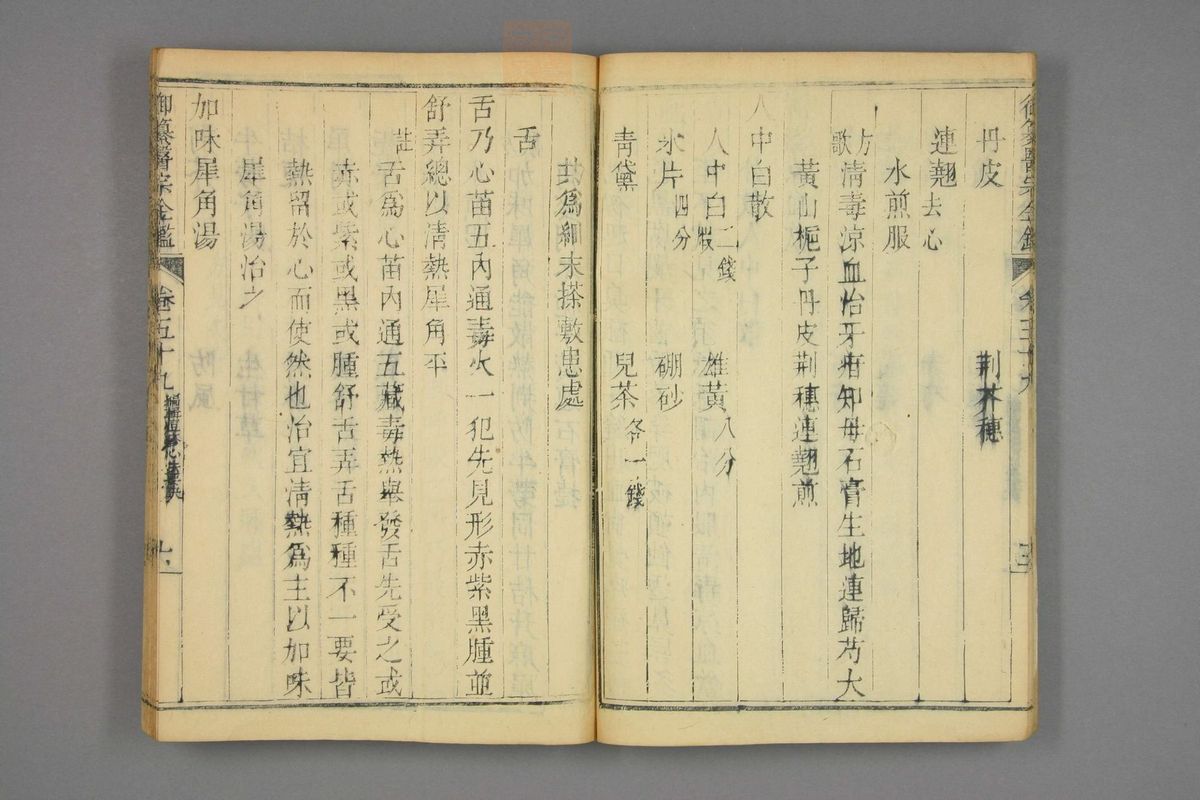 丹皮 荆芥穗
連翹去心
水煎服
方歌 清毒涼血治牙疳知母石膏生地連歸芍大
黃山梔子丹皮荆穗連翹煎
人中白散
人中白二錢煅 雄黃八分
氷片四分 硼砂
青黛 兒茶各一錢
共爲細末搽敷患處
舌
舌乃心苗五內通毒火一犯先見形赤紫黑腫並
舒弄總以清熱犀角平
註 舌爲心苗內通五藏毒熱舉發舌先受之或
赤或紫或黑或腫舒舌弄舌種種不一要皆
熱留於心而使然也治宜清熱爲主以加味
犀角湯治之
加味犀角湯
御纂醫宗金鑑 卷五十九